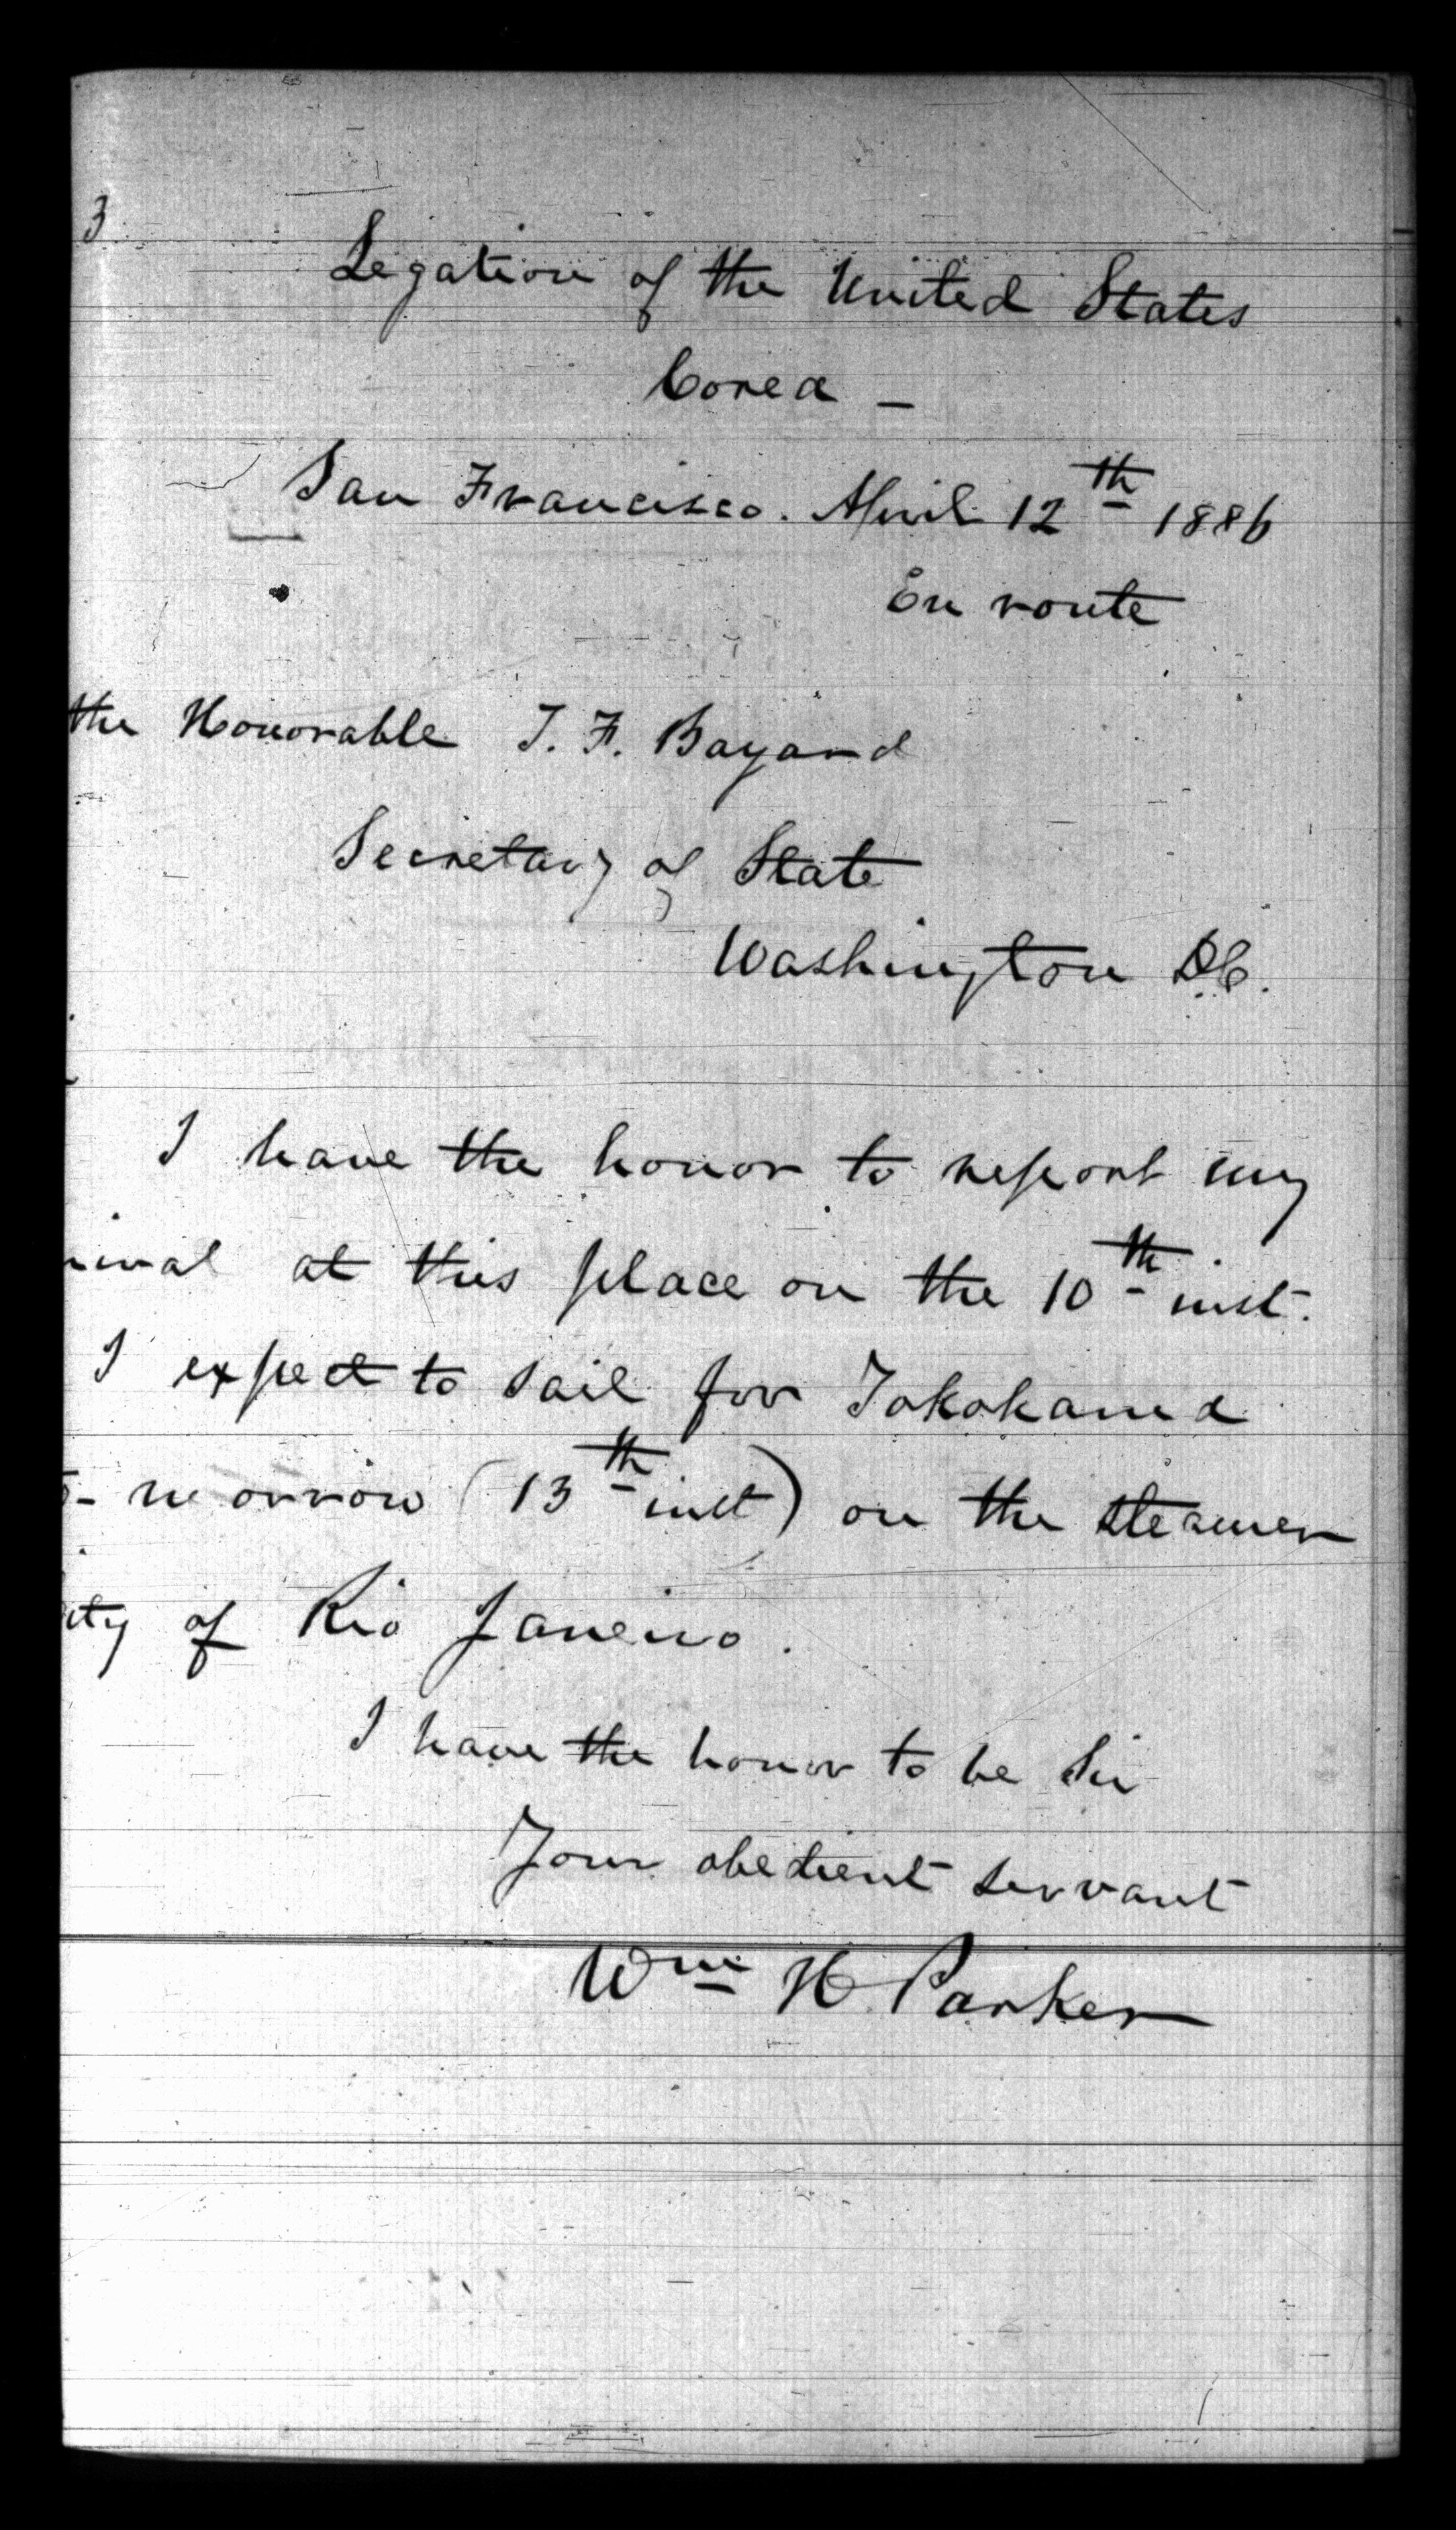 3
Legation of the United States
Corea -
San Francisco. April 12th 1886
En route
the Honorable T. F. Bayard
Secretary of State
Washington D.C.
I have the honor to report my
rival at this place on the 10th inst.
I expect to sail for Yokohama
- morrow (13th inst) on the steamer
ity of Rio Janeiro.
I have the honor to be Sir
Your obedient servant
Wm H Parker